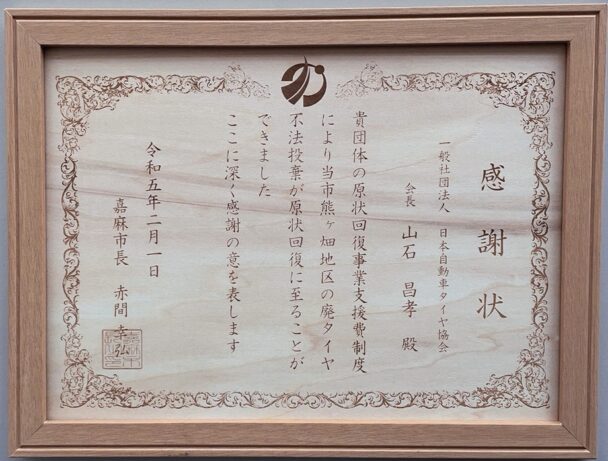 感謝状
一般社団法人 日本自動車タイヤ協会
会長 山石 昌孝 殿
貴団体の原状回復事業支援費制度
により当市熊ヶ畑地区の廃タイヤ
不法投棄が原状回復に至ることが
できました
ここに深く感謝の意を表します
令和五年二月一日
嘉麻市長 赤間 幸弘